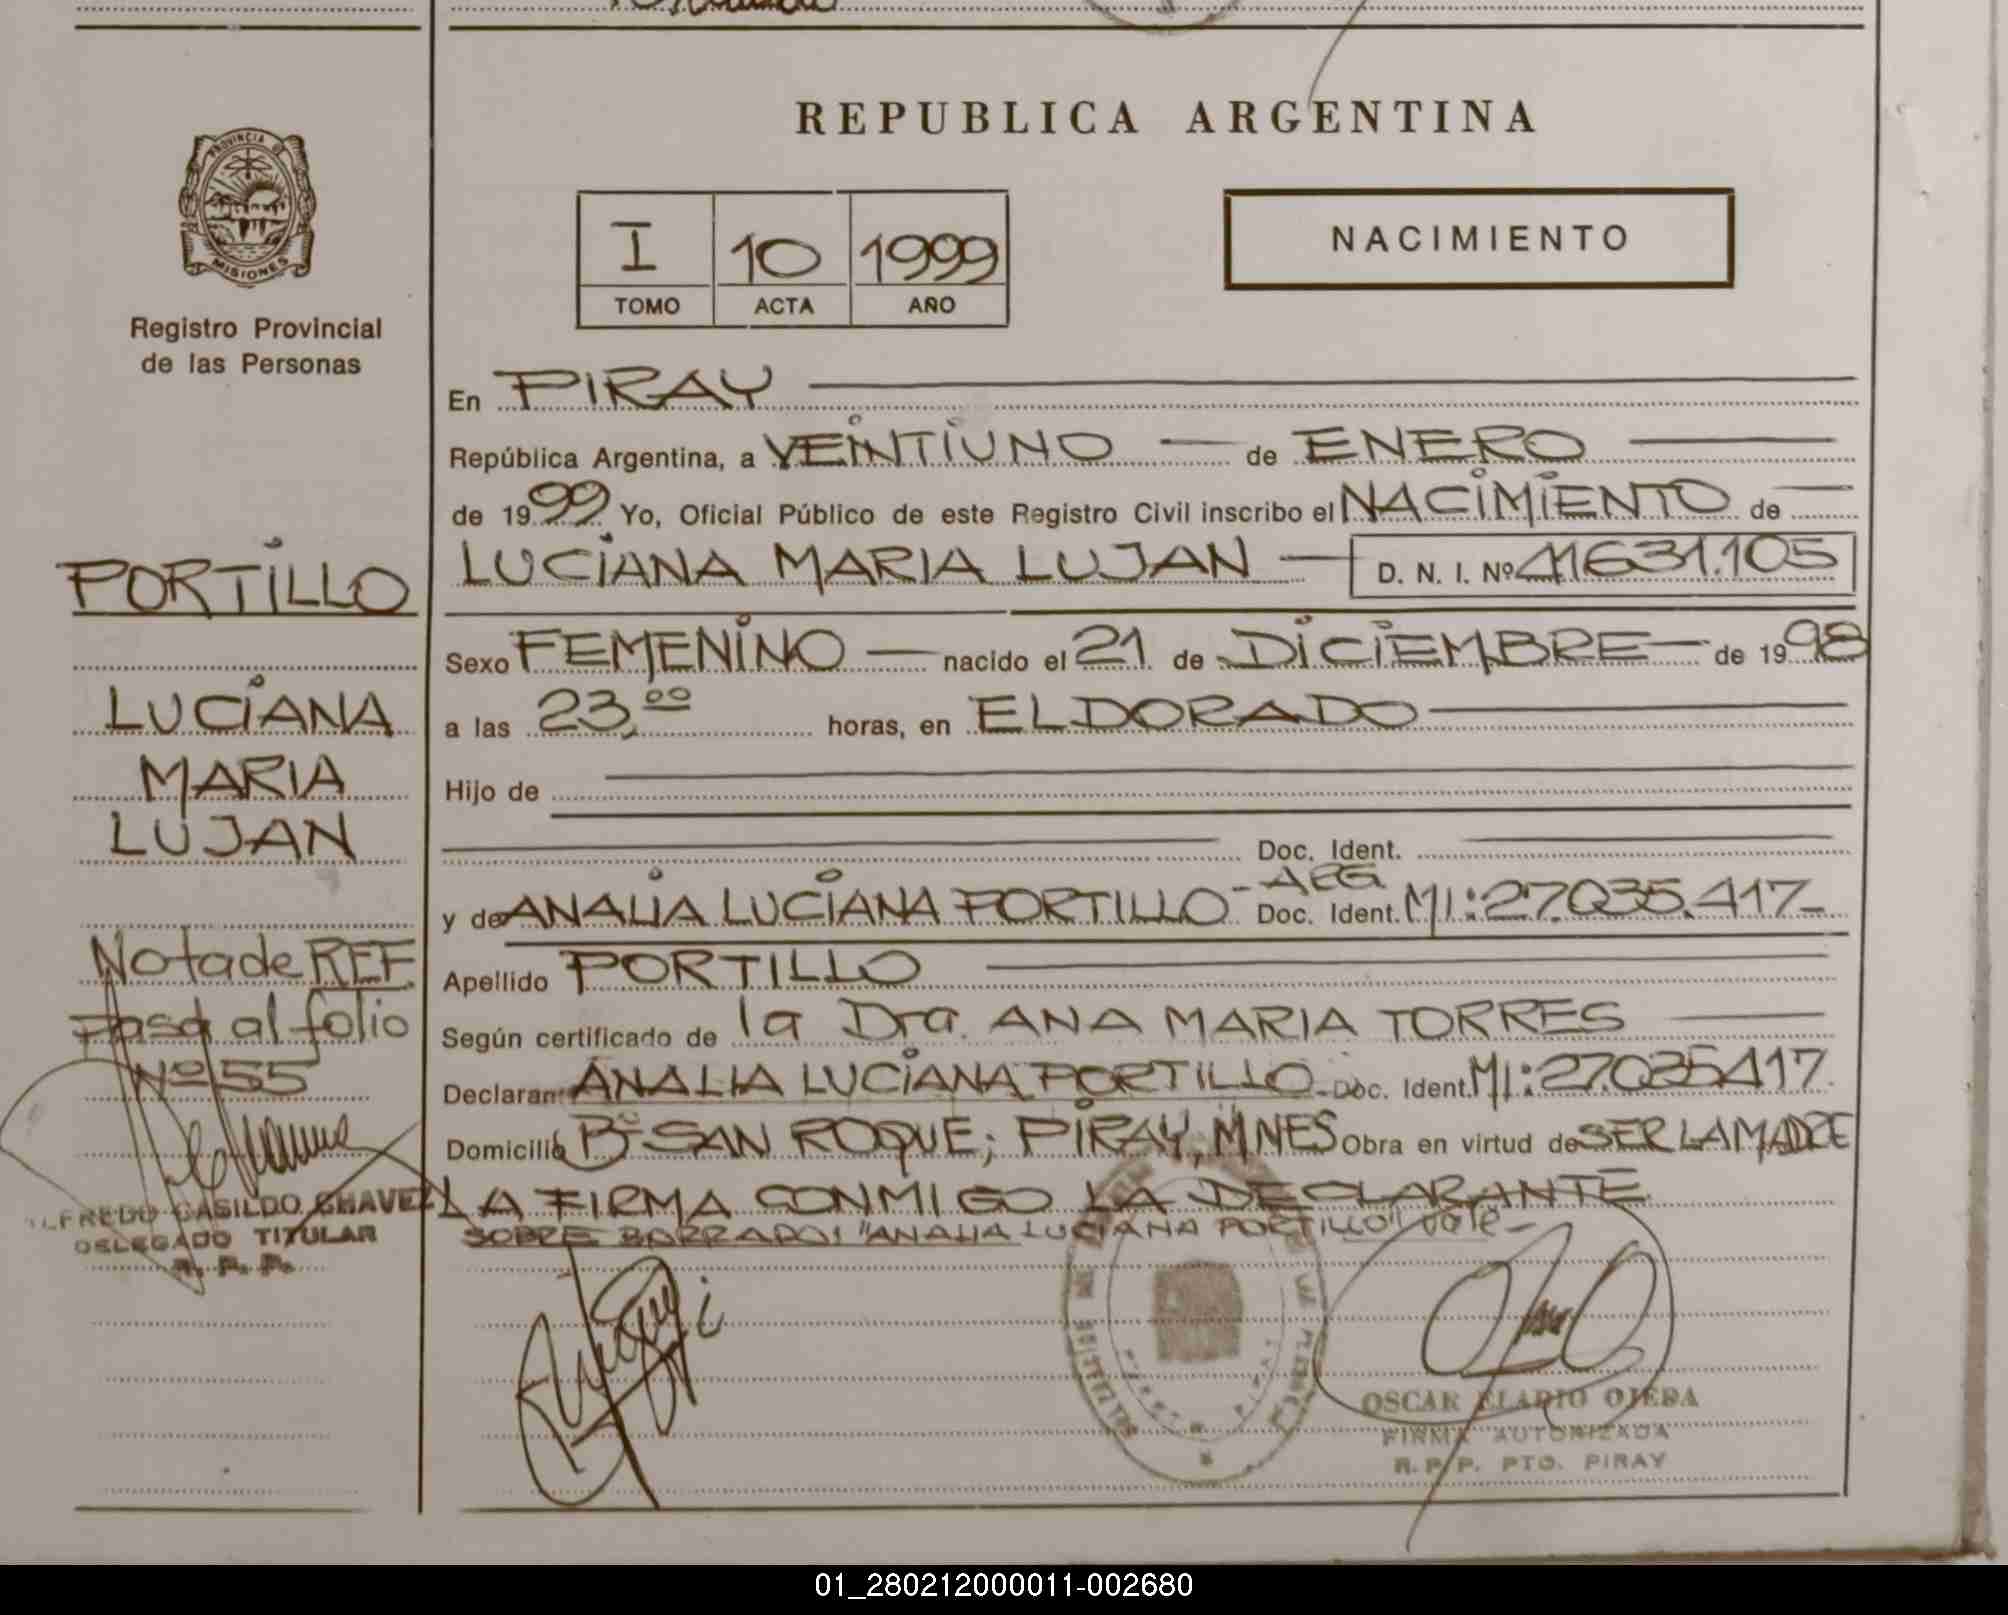 REPUBLICA ARGENTINA
PROVINCIA DE
MISIONES
Registro Provincial
de las Personas
I 10 1999
TOMO ACTA AÑO
NACIMIENTO
En PIRAY
República Argentina, a VEINTIUNO de ENERO
de 1999 Yo, Oficial Público de este Registro Civil inscribo el NACIMIENTO de
LUCIANA MARIA LUJAN D. N. I. Nº 41631.105
Sexo FEMENINO nacido el 21 de DICIEMBRE de 1998
a las 23,00 horas, en ELDORADO
Hijo de
Doc. Ident.
ARG
y de ANALIA LUCIANA PORTILLO - Doc. Ident. MI: 27.035.417-
Apellido PORTILLO
Según certificado de la Dra. ANA MARIA TORRES
Declarante ANALIA LUCIANA PORTILLO - Doc. Ident. MI: 27.035417.
Domicilio Bº SAN ROQUE; PIRAY, MNES Obra en virtud de SER LA MADRE
LA FIRMA CONMIGO LA DECLARANTE
SOBRE BORRADO: "ANALIA LUCIANA PORTILLO" vale-
PORTILLO
LUCIANA
MARIA
LUJAN
Nota de REF.
Pasa al folio
Nº 55
ALFREDO CASILDO CHAVEZ
DELEGADO TITULAR
R. P. P.
OSCAR ELADIO OJEDA
FIRMA AUTORIZADA
R. P. P. PTO. PIRAY
01_280212000011-002680